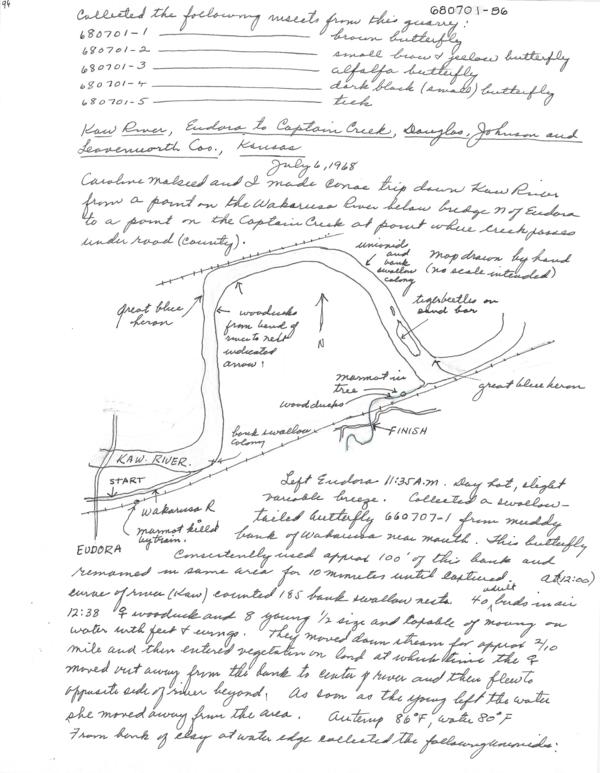 94
680701-B6
Collected the following insects from this quarry:
680701-1 brown butterfly
680701-2 small brown & yellow butterfly
680701-3 alfalfa butterfly
680701-4 dark black (small) butterfly
680701-5 tick
Kaw River, Eudora to Captain Creek, Douglas, Johnson and
Leavenworth Cos., Kansas
July 6, 1968
Caroline and I made canoe trip down Kaw River
from a point on the Wakarusa River below bridge N of Eudora
to a point on the Captain Creek at point where creek passes
under road (county).
unionids
and
bank
swallow
colony
Map drawn by hand
(no scale intended)
great blue
heron
woodducks
from bend of
river to next
indicated
arrow!
N
tigerbeetles on
sand bar
marmot in
tree
woodducks
great blue heron
bank swallow
colony
FINISH
KAW. RIVER.
START
Wakarusa R
marmot killed
by train.
EUDORA
Left Eudora 11:35 A.M. Day hot, slight
variable breeze. Collected a swallow-
tailed butterfly 660707-1 from muddy
bank of Wakarusa near mouth. This butterfly
consistently used approx 100' of this bank and
remained in same area for 10 minutes until captured. At (12:00)
curve of river (Kaw) counted 185 bank swallow nests. 40 adult birds in air
12:38 ♀ woodduck and 8 young 1/2 size and capable of moving on
water with feet & wings. They moved down stream for approx 2/10
mile and then entered vegetation on land at which time the ♀
moved out away from the bank to center of river and then flew to
opposite side of river beyond. As soon as the young left the water
she moved away from the area. Air temp 86°F, water 80°F
From bank of clay at water edge collected the following unionids: